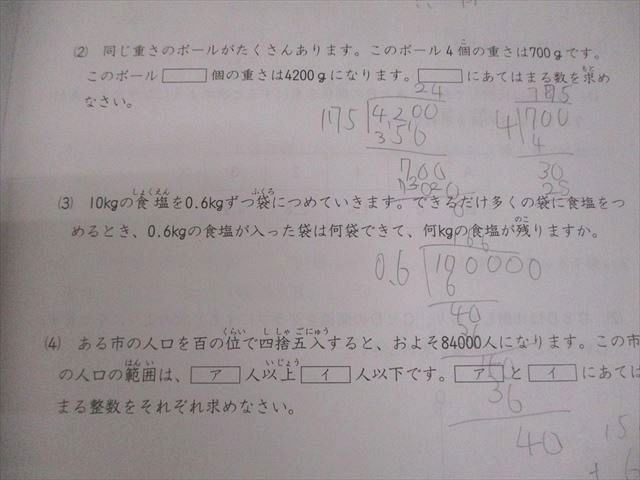 (2) 同じ重さのボールがたくさんあります。このボール4個の重さは700gです。
このボール 個の重さは4200gになります。 にあてはまる数を求め
なさい。
24
175 4,200
350
700
4 700
4
30
(3) 10kgの食塩を0.6kgずつ袋につめていきます。できるだけ多くの袋に食塩をつ
めるとき、0.6kgの食塩が入った袋は何袋できて、何kgの食塩が残りますか。
0.6 100000
6
40
36
40
(4) ある市の人口を百の位で四捨五入すると、およそ84000人になります。この市
の人口の範囲は、ア人以上イ人以下です。アとイにあては
まる整数をそれぞれ求めなさい。